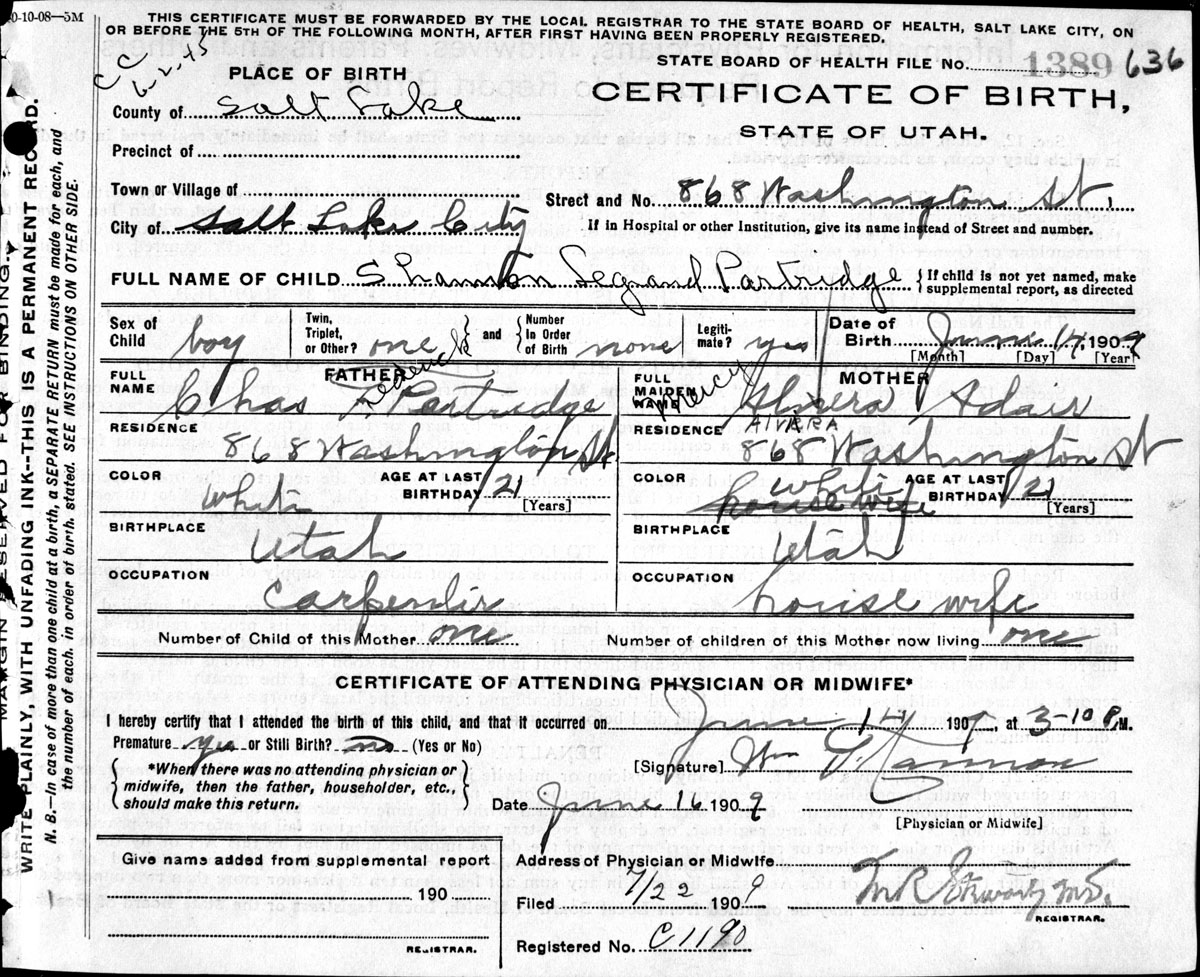 0-10-08—5M
THIS CERTIFICATE MUST BE FORWARDED BY THE LOCAL REGISTRAR TO THE STATE BOARD OF HEALTH, SALT LAKE CITY, ON
OR BEFORE THE 5TH OF THE FOLLOWING MONTH, AFTER FIRST HAVING BEEN PROPERLY REGISTERED.
CC
6-2-45
STATE BOARD OF HEALTH FILE No. 1389 636
PLACE OF BIRTH
CERTIFICATE OF BIRTH,
STATE OF UTAH.
County of Salt Lake
Precinct of
Town or Village of
Street and No. 868 Washington St.
City of Salt Lake City
If in Hospital or other Institution, give its name instead of Street and number.
FULL NAME OF CHILD Legrand Partridge { If child is not yet named, make
supplemental report, as directed
Sex of Child boy
Twin, Triplet, or Other? one and Number In Order of Birth none
Legiti-mate? yes
Date of Birth June 14, 1909
[Month] [Day] [Year]
FATHER
FULL NAME Chas Partridge
MOTHER
FULL MAIDEN NAME Mercy Almera Adair
ALVARA
RESIDENCE 868 Washington St
RESIDENCE 868 Washington St
COLOR White
AGE AT LAST BIRTHDAY 21 [Years]
COLOR white
house wife
AGE AT LAST BIRTHDAY 21 [Years]
BIRTHPLACE Utah
BIRTHPLACE Utah
OCCUPATION Carpenter
OCCUPATION house wife
Number of Child of this Mother one
Number of children of this Mother now living one
CERTIFICATE OF ATTENDING PHYSICIAN OR MIDWIFE*
I hereby certify that I attended the birth of this child, and that it occurred on June 14 1909, at 3-10 P.M.
Premature yes or Still Birth? no (Yes or No)
*When there was no attending physician or
midwife, then the father, householder, etc.,
should make this return.
[Signature] Wm T. Cannon
Date June 16 1909
[Physician or Midwife]
Give name added from supplemental report
190
REGISTRAR.
Address of Physician or Midwife
Filed 7/22 1909
REGISTRAR.
Registered No. C1190
MARGIN RESERVED FOR BINDING.
WRITE PLAINLY, WITH UNFADING INK--THIS IS A PERMANENT RECORD.
N. B.—In case of more than one child at a birth, a SEPARATE RETURN must be made for each, and
the number of each, in order of birth, stated. SEE INSTRUCTIONS ON OTHER SIDE.